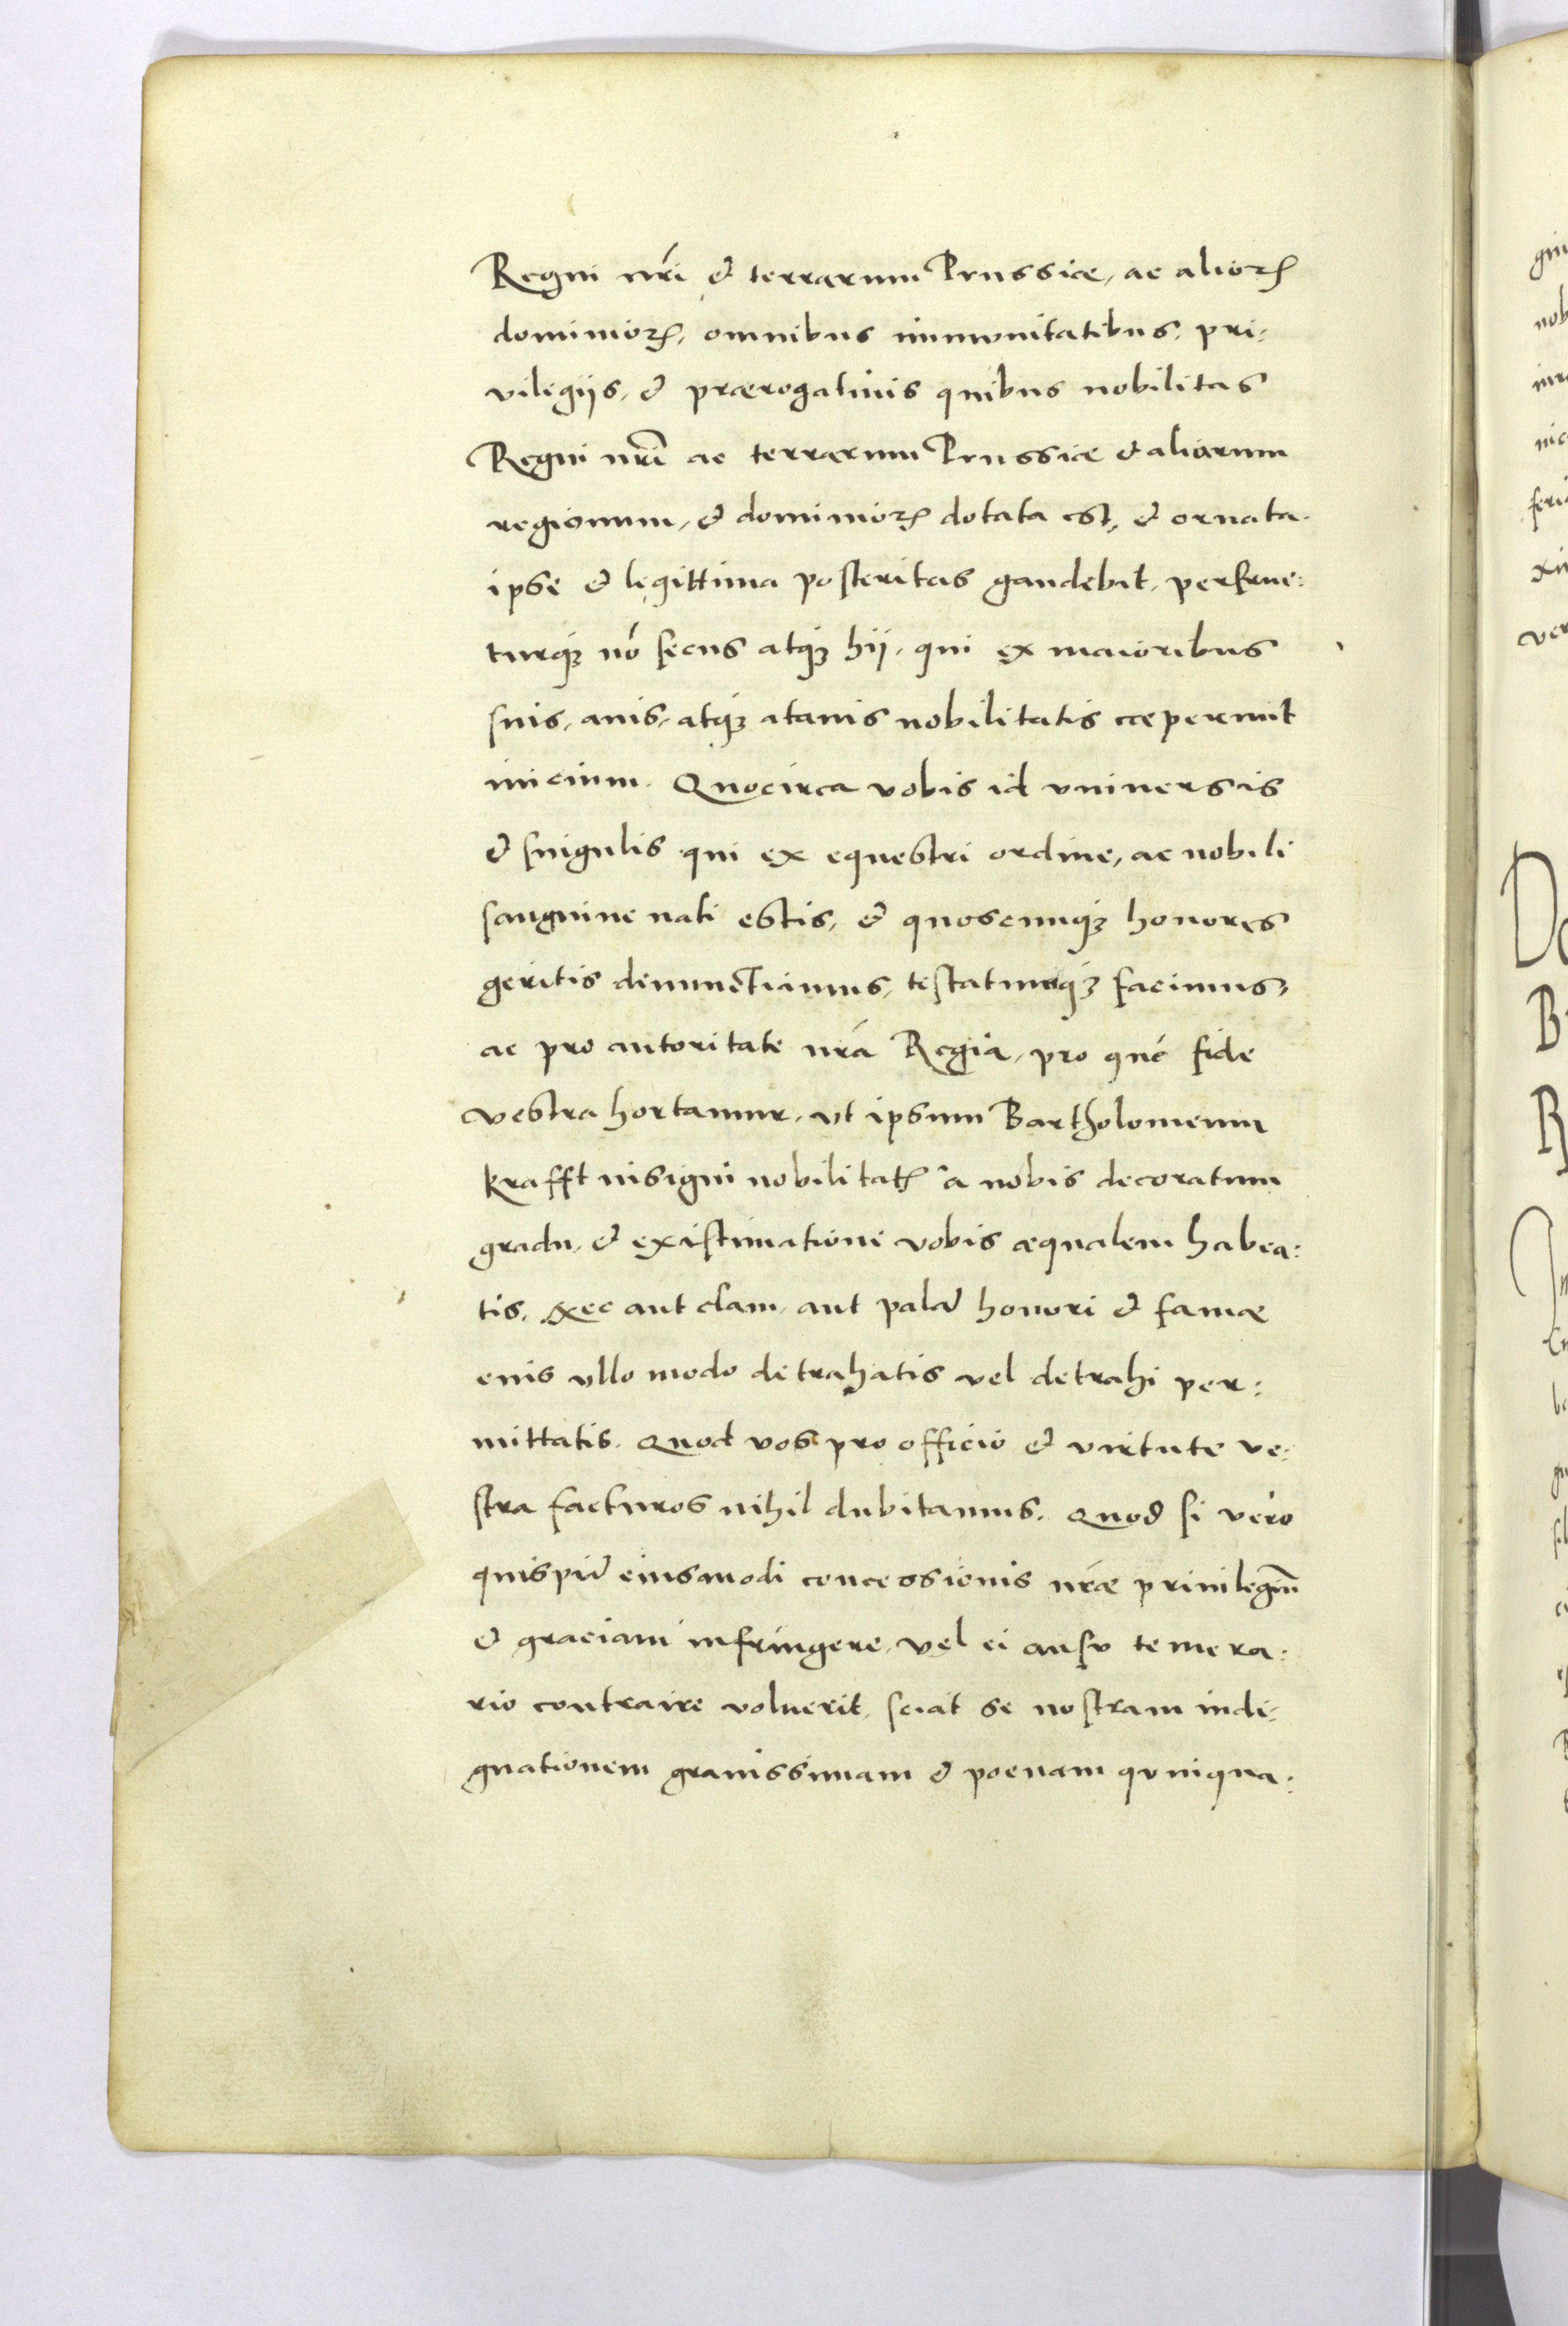 Regni nr̃i & terrarum Prussiæ, ac aliorꝝ
dominiorꝝ, omnibus immunitatibus, pri:
vilegijs, & prærogatiuis quibus nobilitas
Regni nr̃i ac terrarum Prussiæ & aliarum
regionum, & dominiorꝝ dotata est, & ornata.
ipse & legittima posteritas gaudebit, perfrue:
turqꝫ nõ secus atqꝫ hij, qui ex maioribus
suis, auis, atqꝫ atauis nobilitatis cœperunt
inicium. Quocirca vobis id vniuersis
& singulis qui ex equestri ordine, ac nobili
sanguine nati estis, & quoscunqꝫ honores
geritis denunctiamus, testatumqꝫ facimus,
ac pro autoritate nr̃a Regia, pro qué fide
vestra hortamur, vt ipsum Bartholomeum
Krafft insigni nobilitatꝭ à nobis decoratum
gradu, & existimatione vobis æqualem habea:
tis, Nec aut clam, aut palã honori & famæ
euis vllo modo detrahatis vel detrahi per:
mittatis. Quod vos pro officio & virtute ve:
stra facturos nihil dubitamus. Quod si vero
quispiã eiusmodi concessionis nr̃æ priuilegiũ
& graciam infringere, vel ei ausu temera:
rio contraire voluerit, sciat se nostram indi:
gnationem grauissimam & poenam quinqua:
gin
nob
nic
feri
ver
Do
B
R
In